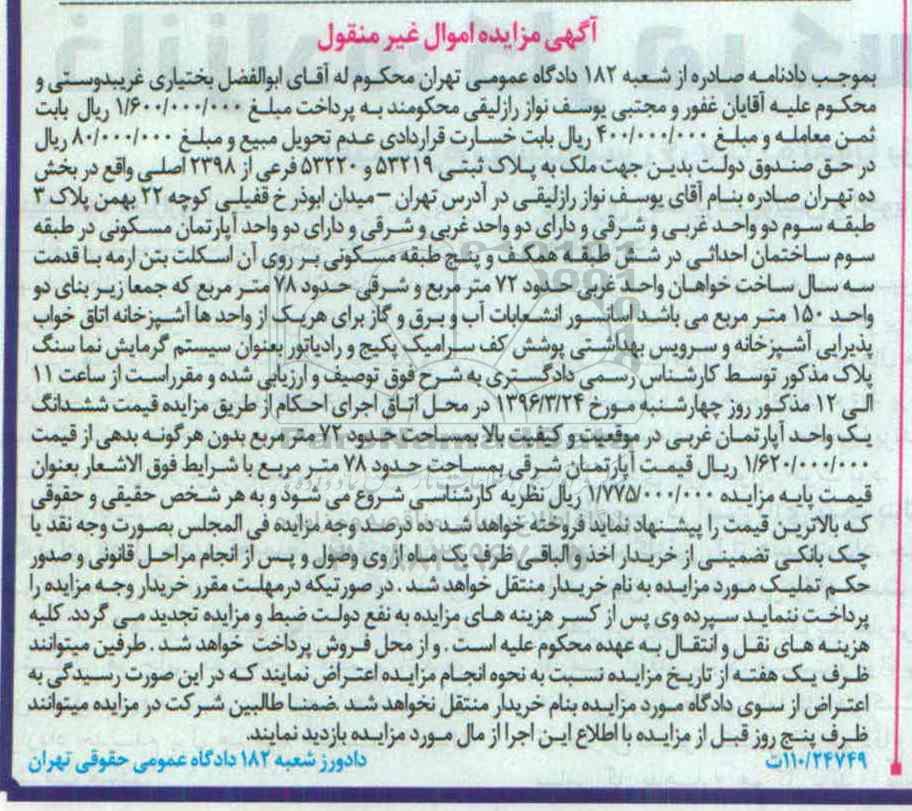 آگهی مزایده اموال غیر منقول
بموجب دادنامه صادره از شعبه ۱۸۲ دادگاه عمومی تهران محکوم له آقای ابوالفضل بختیاری غریبدوستی و
محکوم علیه آقایان غفور و مجتبی یوسف نواز رازلیقی محکومند به پرداخت مبلغ ۱/۶۰۰/۰۰۰/۰۰۰ ریال بابت
ثمن معامله و مبلغ ۴۰۰/۰۰۰/۰۰۰ ریال بابت خسارت قراردادی عدم تحویل مبیع و مبلغ ۸۰/۰۰۰/۰۰۰ ریال
در حق صندوق دولت بدین جهت ملک به پلاک ثبتی ۵۳۲۱۹ و ۵۳۲۲۰ فرعی از ۲۳۹۸ اصلی واقع در بخش
ده تهران صادره بنام آقای یوسف نواز رازلیقی در آدرس تهران – میدان ابوذر خ قفیلی کوچه ۲۲ بهمن پلاک ۳
طبقه سوم دو واحد غربی و شرقی و دارای دو واحد غربی و شرقی و دارای دو واحد آپارتمان مسکونی در طبقه
سوم ساختمان احداثی در شش طبقه همکف و پنج طبقه مسکونی بر روی آن اسکلت بتن ارمه با قدمت
سه سال ساخت خواهان واحد غربی حدود ۷۲ متر مربع و شرقی حدود ۷۸ متر مربع که جمعا زیر بنای دو
واحد ۱۵۰ متر مربع می باشد آسانسور انشعابات آب و برق و گاز برای هریک از واحد ها آشپزخانه اتاق خواب
پذیرایی آشپزخانه و سرویس بهداشتی پوشش کف سرامیک پکیج و رادیاتور بعنوان سیستم گرمایش نما سنگ
پلاک مذکور توسط کارشناس رسمی دادگستری به شرح فوق توصیف و ارزیابی شده و مقرراست از ساعت ۱۱
الی ۱۲ مذکور روز چهارشنبه مورخ ۱۳۹۶/۳/۲۴ در محل اتاق اجرای احکام از طریق مزایده قیمت ششدانگ
یک واحد آپارتمان غربی در موقعیت و کیفیت بالا بمساحت حدود ۷۲ متر مربع بدون هرگونه بدهی از قیمت
۱/۶۲۰/۰۰۰/۰۰۰ ریال قیمت آپارتمان شرقی بمساحت حدود ۷۸ متر مربع با شرایط فوق الاشعار بعنوان
قیمت پایه مزایده ۱/۷۷۵/۰۰۰/۰۰۰ ریال نظریه کارشناسی شروع می شود و به هر شخص حقیقی و حقوقی
که بالاترین قیمت را پیشنهاد نماید فروخته خواهد شد ده درصد وجه مزایده فی المجلس بصورت وجه نقد یا
چک بانکی تضمینی از خریدار اخذ و الباقی ظرف یک ماه از وی وصول و پس از انجام مراحل قانونی و صدور
حکم تملیک مورد مزایده به نام خریدار منتقل خواهد شد . در صورتیکه درمهلت مقرر خریدار وجه مزایده را
پرداخت ننماید سپرده وی پس از کسر هزینه های مزایده به نفع دولت ضبط و مزایده تجدید می گردد. کلیه
هزینه های نقل و انتقال به عهده محکوم علیه است . و از محل فروش پرداخت خواهد شد . طرفین میتوانند
ظرف یک هفته از تاریخ مزایده نسبت به نحوه انجام مزایده اعتراض نمایند که در این صورت رسیدگی به
اعتراض از سوی دادگاه مورد مزایده بنام خریدار منتقل نخواهد شد .ضمنا طالبین شرکت در مزایده میتوانند
ظرف پنج روز قبل از مزایده با اطلاع این اجرا از مال مورد مزایده بازدید نمایند.
۱۱۰/۲۴۷۴۹ت دادورز شعبه ۱۸۲ دادگاه عمومی حقوقی تهران